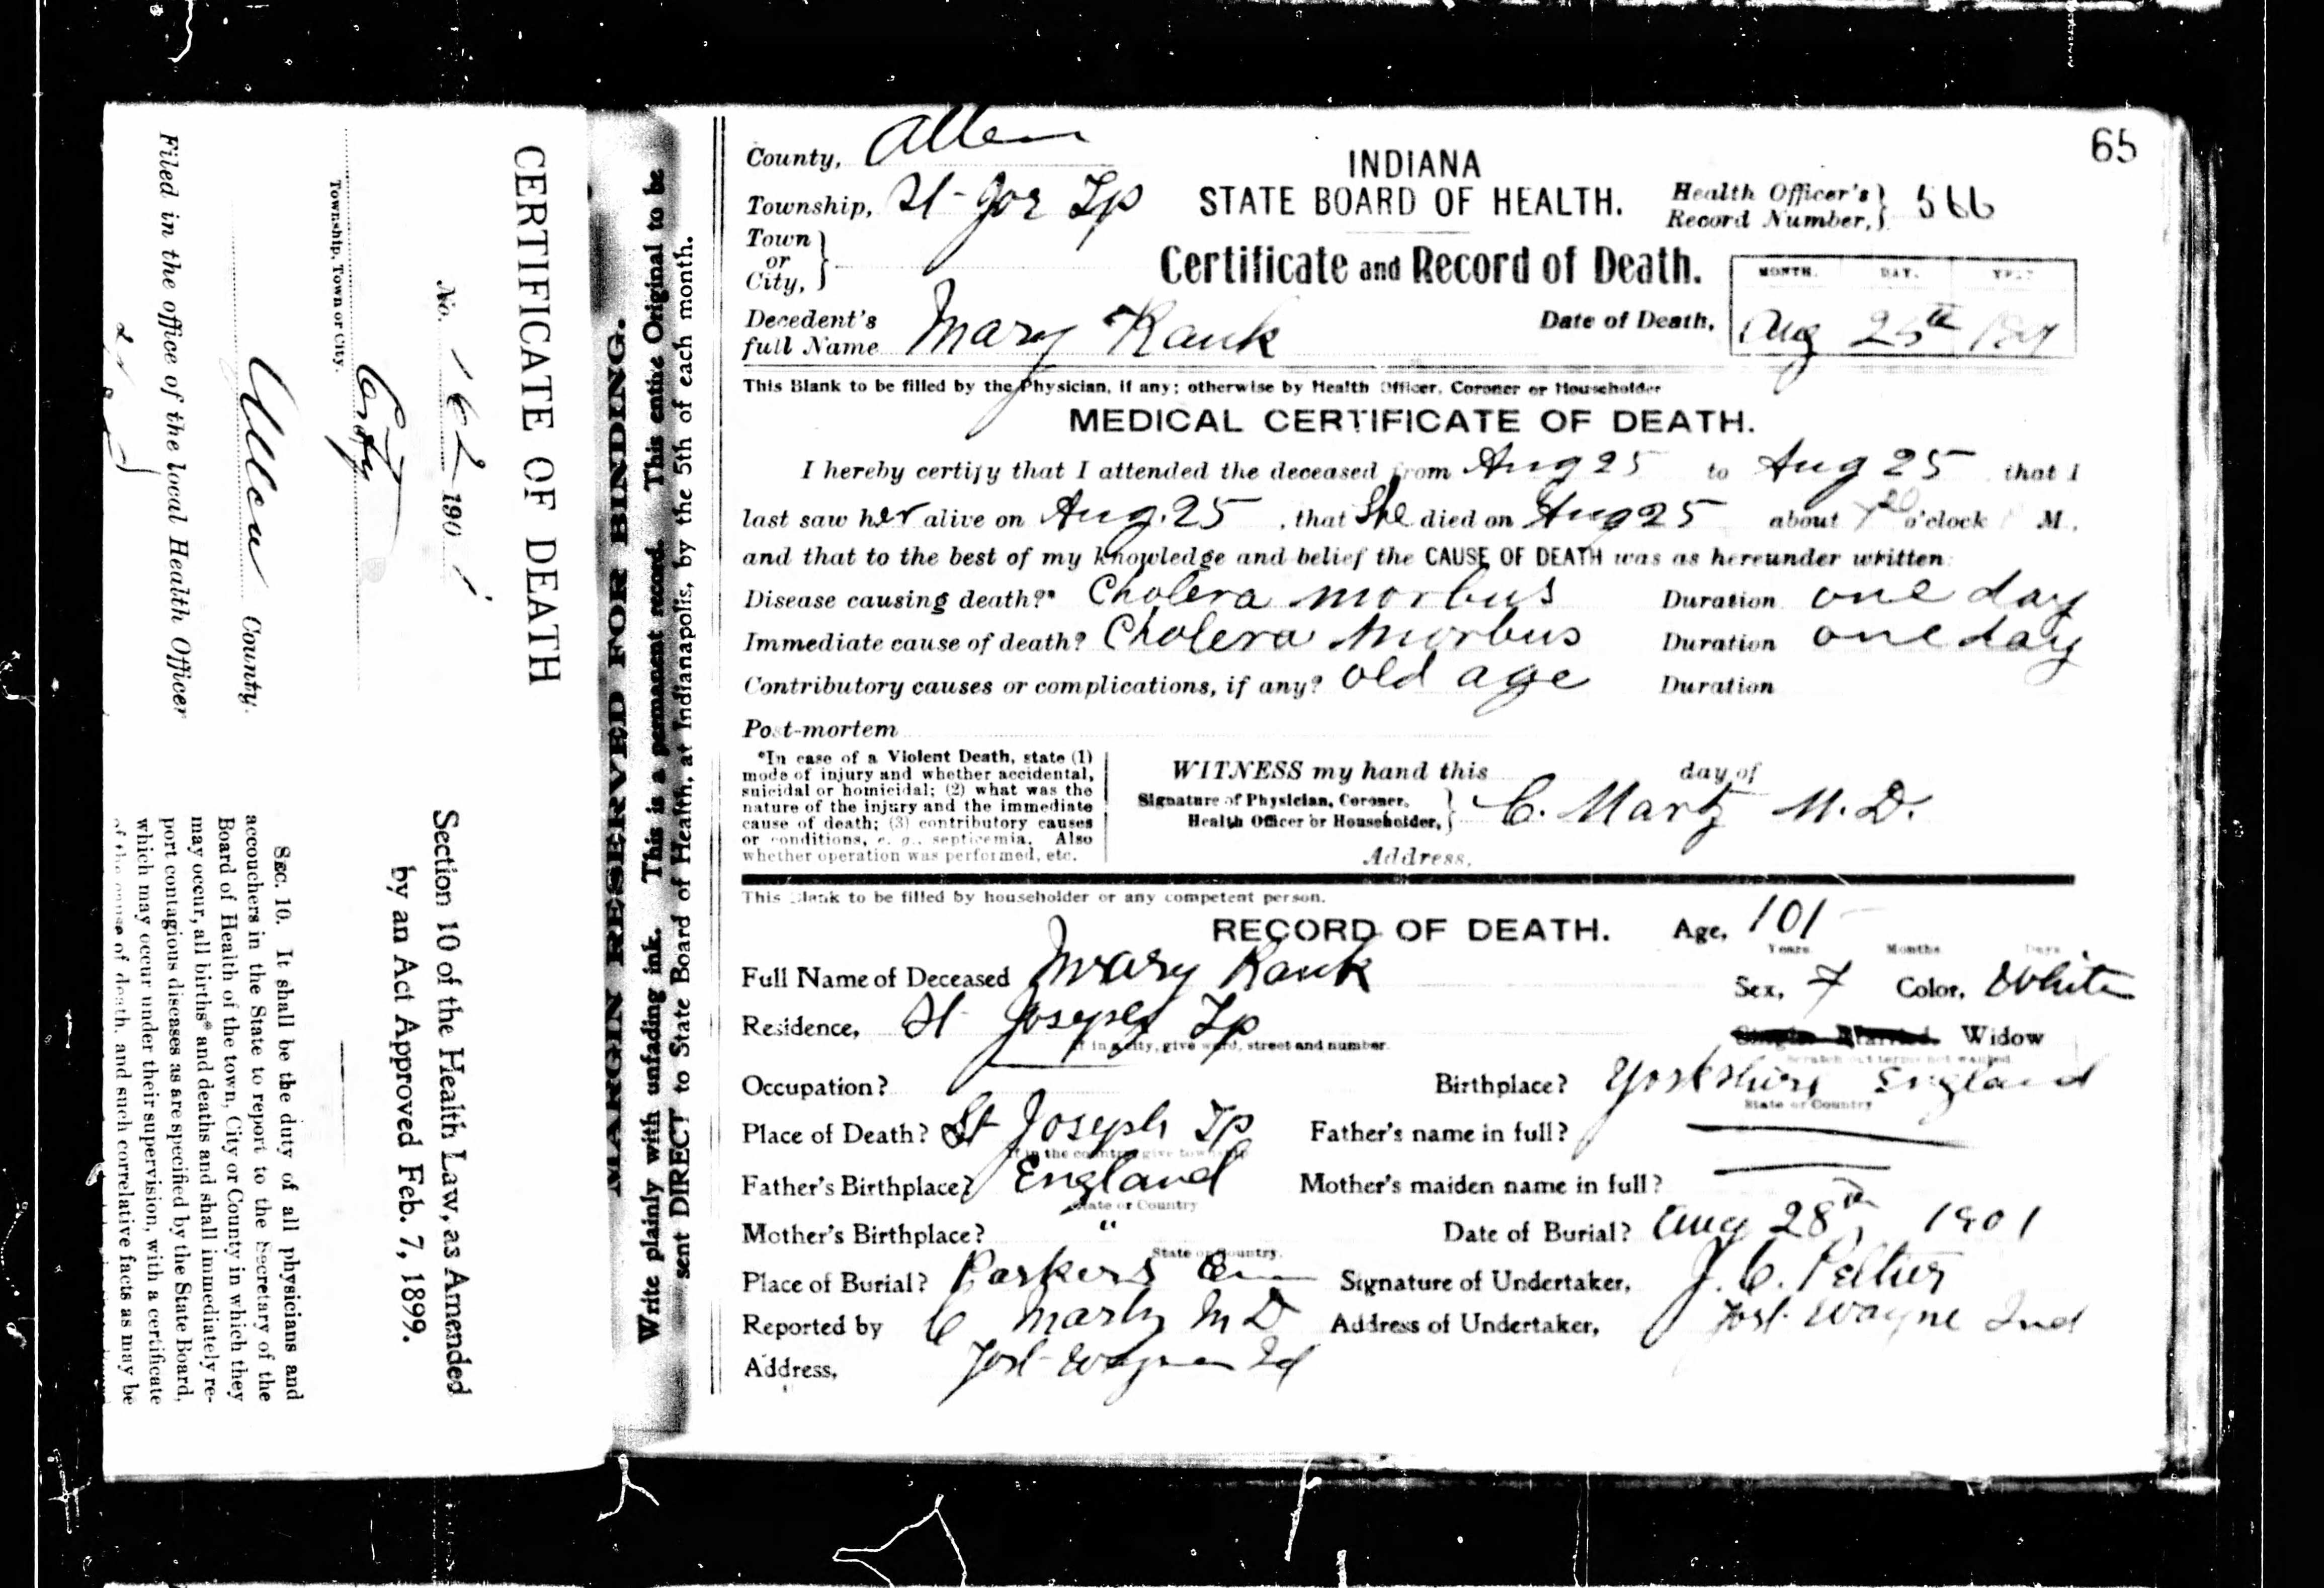 CERTIFICATE OF DEATH
No. 162 190 1
City
Township, Town or City.
Allen County.
Filed in the office of the local Health Officer
Section 10 of the Health Law, as Amended
by an Act Approved Feb. 7, 1899.
SEC. 10. It shall be the duty of all physicians and
accouchers in the State to report to the Secretary of the
Board of Health of the town, City or County in which they
may occur, all births* and deaths and shall immediately re-
port contagious diseases as are specified by the State Board,
which may occur under their supervision, with a certificate
of the cause of death, and such correlative facts as may be
MARGIN RESERVED FOR BINDING.
Write plainly with unfading ink. This is a permanent record. This entire Original to be
sent DIRECT to State Board of Health, at Indianapolis, by the 5th of each month.
65
County, Allen
INDIANA
Township, St-Joe Tp
STATE BOARD OF HEALTH.
Health Officer's
Record Number, 566
Town
or
City,
Certificate and Record of Death.
MONTH. DAY. YEAR
Decedent's
full Name Mary Kauk
Date of Death, Aug 25th 1901
This Blank to be filled by the Physician, if any; otherwise by Health Officer, Coroner or Householder
MEDICAL CERTIFICATE OF DEATH.
I hereby certify that I attended the deceased from Aug 25 to Aug 25 that I
last saw her alive on Aug. 25, that She died on Aug 25 about o'clock M.,
and that to the best of my knowledge and belief the CAUSE OF DEATH was as hereunder written:
Disease causing death?* Cholera morbus Duration one day
Immediate cause of death? Cholera Morbus Duration one day
Contributory causes or complications, if any? old age Duration
Post-mortem
*In case of a Violent Death, state (1)
mode of injury and whether accidental,
suicidal or homicidal; (2) what was the
nature of the injury and the immediate
cause of death; (3) contributory causes
or conditions, e. g., septicemia. Also
whether operation was performed, etc.
WITNESS my hand this day of
Signature of Physician, Coroner,
Health Officer or Householder, C. Martz M.D.
Address,
This Blank to be filled by householder or any competent person.
RECORD OF DEATH. Age, 101
Years Months Days
Full Name of Deceased Mary Kauk
Sex, F Color, White
Residence, St Joseph Tp
If in a city, give ward, street and number.
Single Married. Widow
Scratch out terms not wanted.
Occupation?
Birthplace? Yorkshire England
State or Country
Place of Death? St Joseph Tp
If in the country give township
Father's name in full?
Father's Birthplace? England
State or Country
Mother's maiden name in full?
Mother's Birthplace? "
State or Country.
Date of Burial? Aug 28th, 1901
Place of Burial? Parkers Cem
Signature of Undertaker, J. C. Peltier
Reported by C Martz M D
Address of Undertaker, Fort Wayne Ind
Address, Fort-Wayne Id